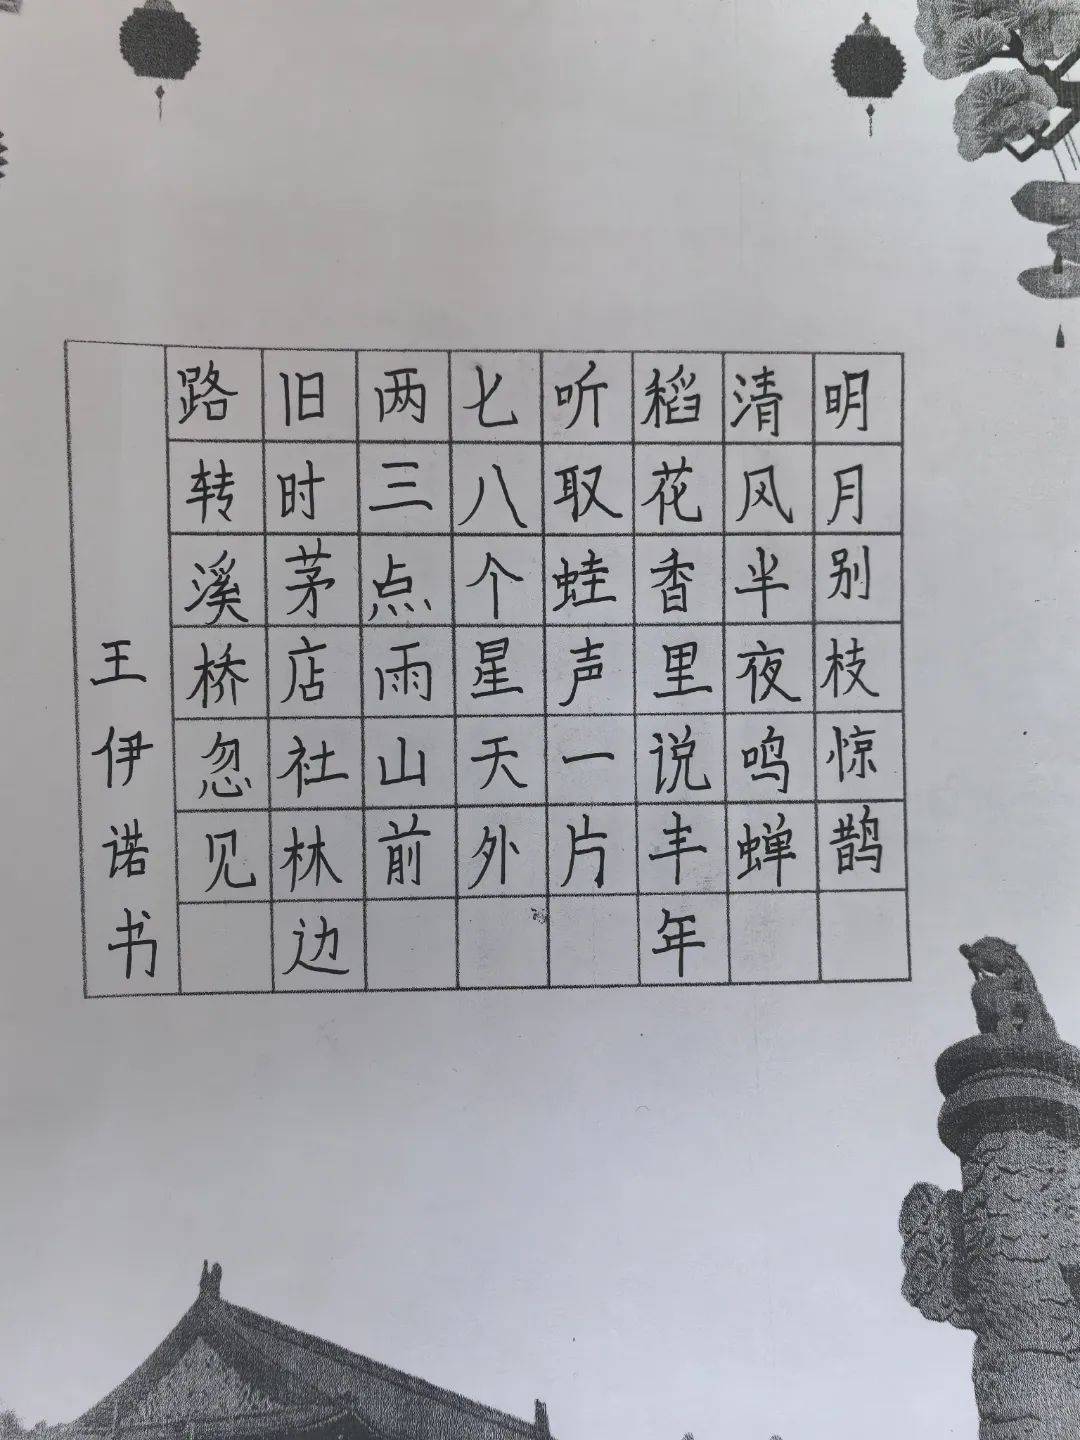 明月别枝惊鹊
清风半夜鸣蝉
稻花香里说丰年
听取蛙声一片
七八个星天外
两三点雨山前
旧时茅店社林边
路转溪桥忽见
王伊诺书